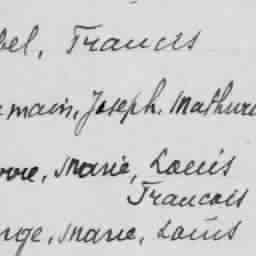 bel, Francis
main, Joseph. Mathuri
rre, Marie, Louis
Francois
rge, Marie, Louis